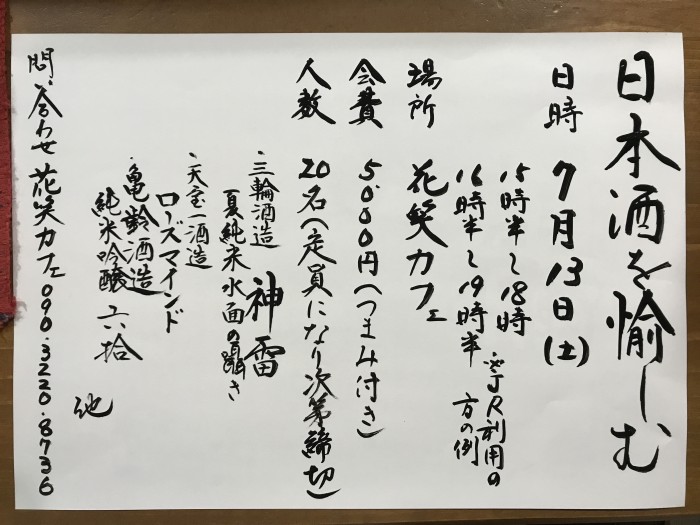 日本酒を愉しむ
日時 7月13日(土)
15時半〜18時
16時半〜19時半 ※JR利用の
方の例
場所 花笑カフェ
会費 5000円(つまみ付き)
人数 20名(定員になり次第締切)
・三輪酒造 神雷
夏純米水面の囁き
・天宝一酒造
ローズマインド
・亀齢酒造
純米吟醸 六拾
他
問い合わせ 花笑カフェ 090.3220.8736